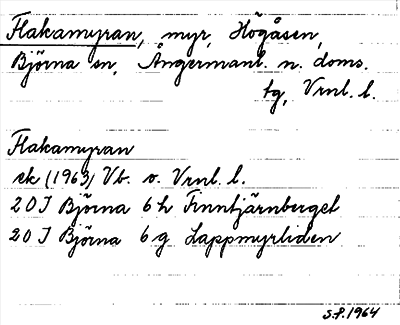 Flakamyran, myr, Högåsen,
Björna sn, Ångermanl. n. doms.
tg, Vrnl. l.
Flakamyran
ek (1963) Vb. o. Vrnl. l.
20 J Björna 6 h Finntjärnberget
20 J Björna 6 g Lappmyrliden
S.P. 1964